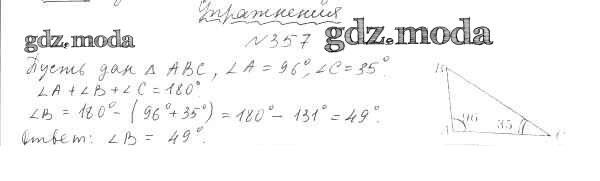 Упражнения
gdz.moda №357 gdz.moda
Пусть дан △ ABC, ∠A = 96°, ∠C = 35°.
∠A + ∠B + ∠C = 180°.
∠B = 180° - (96° + 35°) = 180° - 131° = 49°.
Ответ: ∠B = 49°.
B
96 35